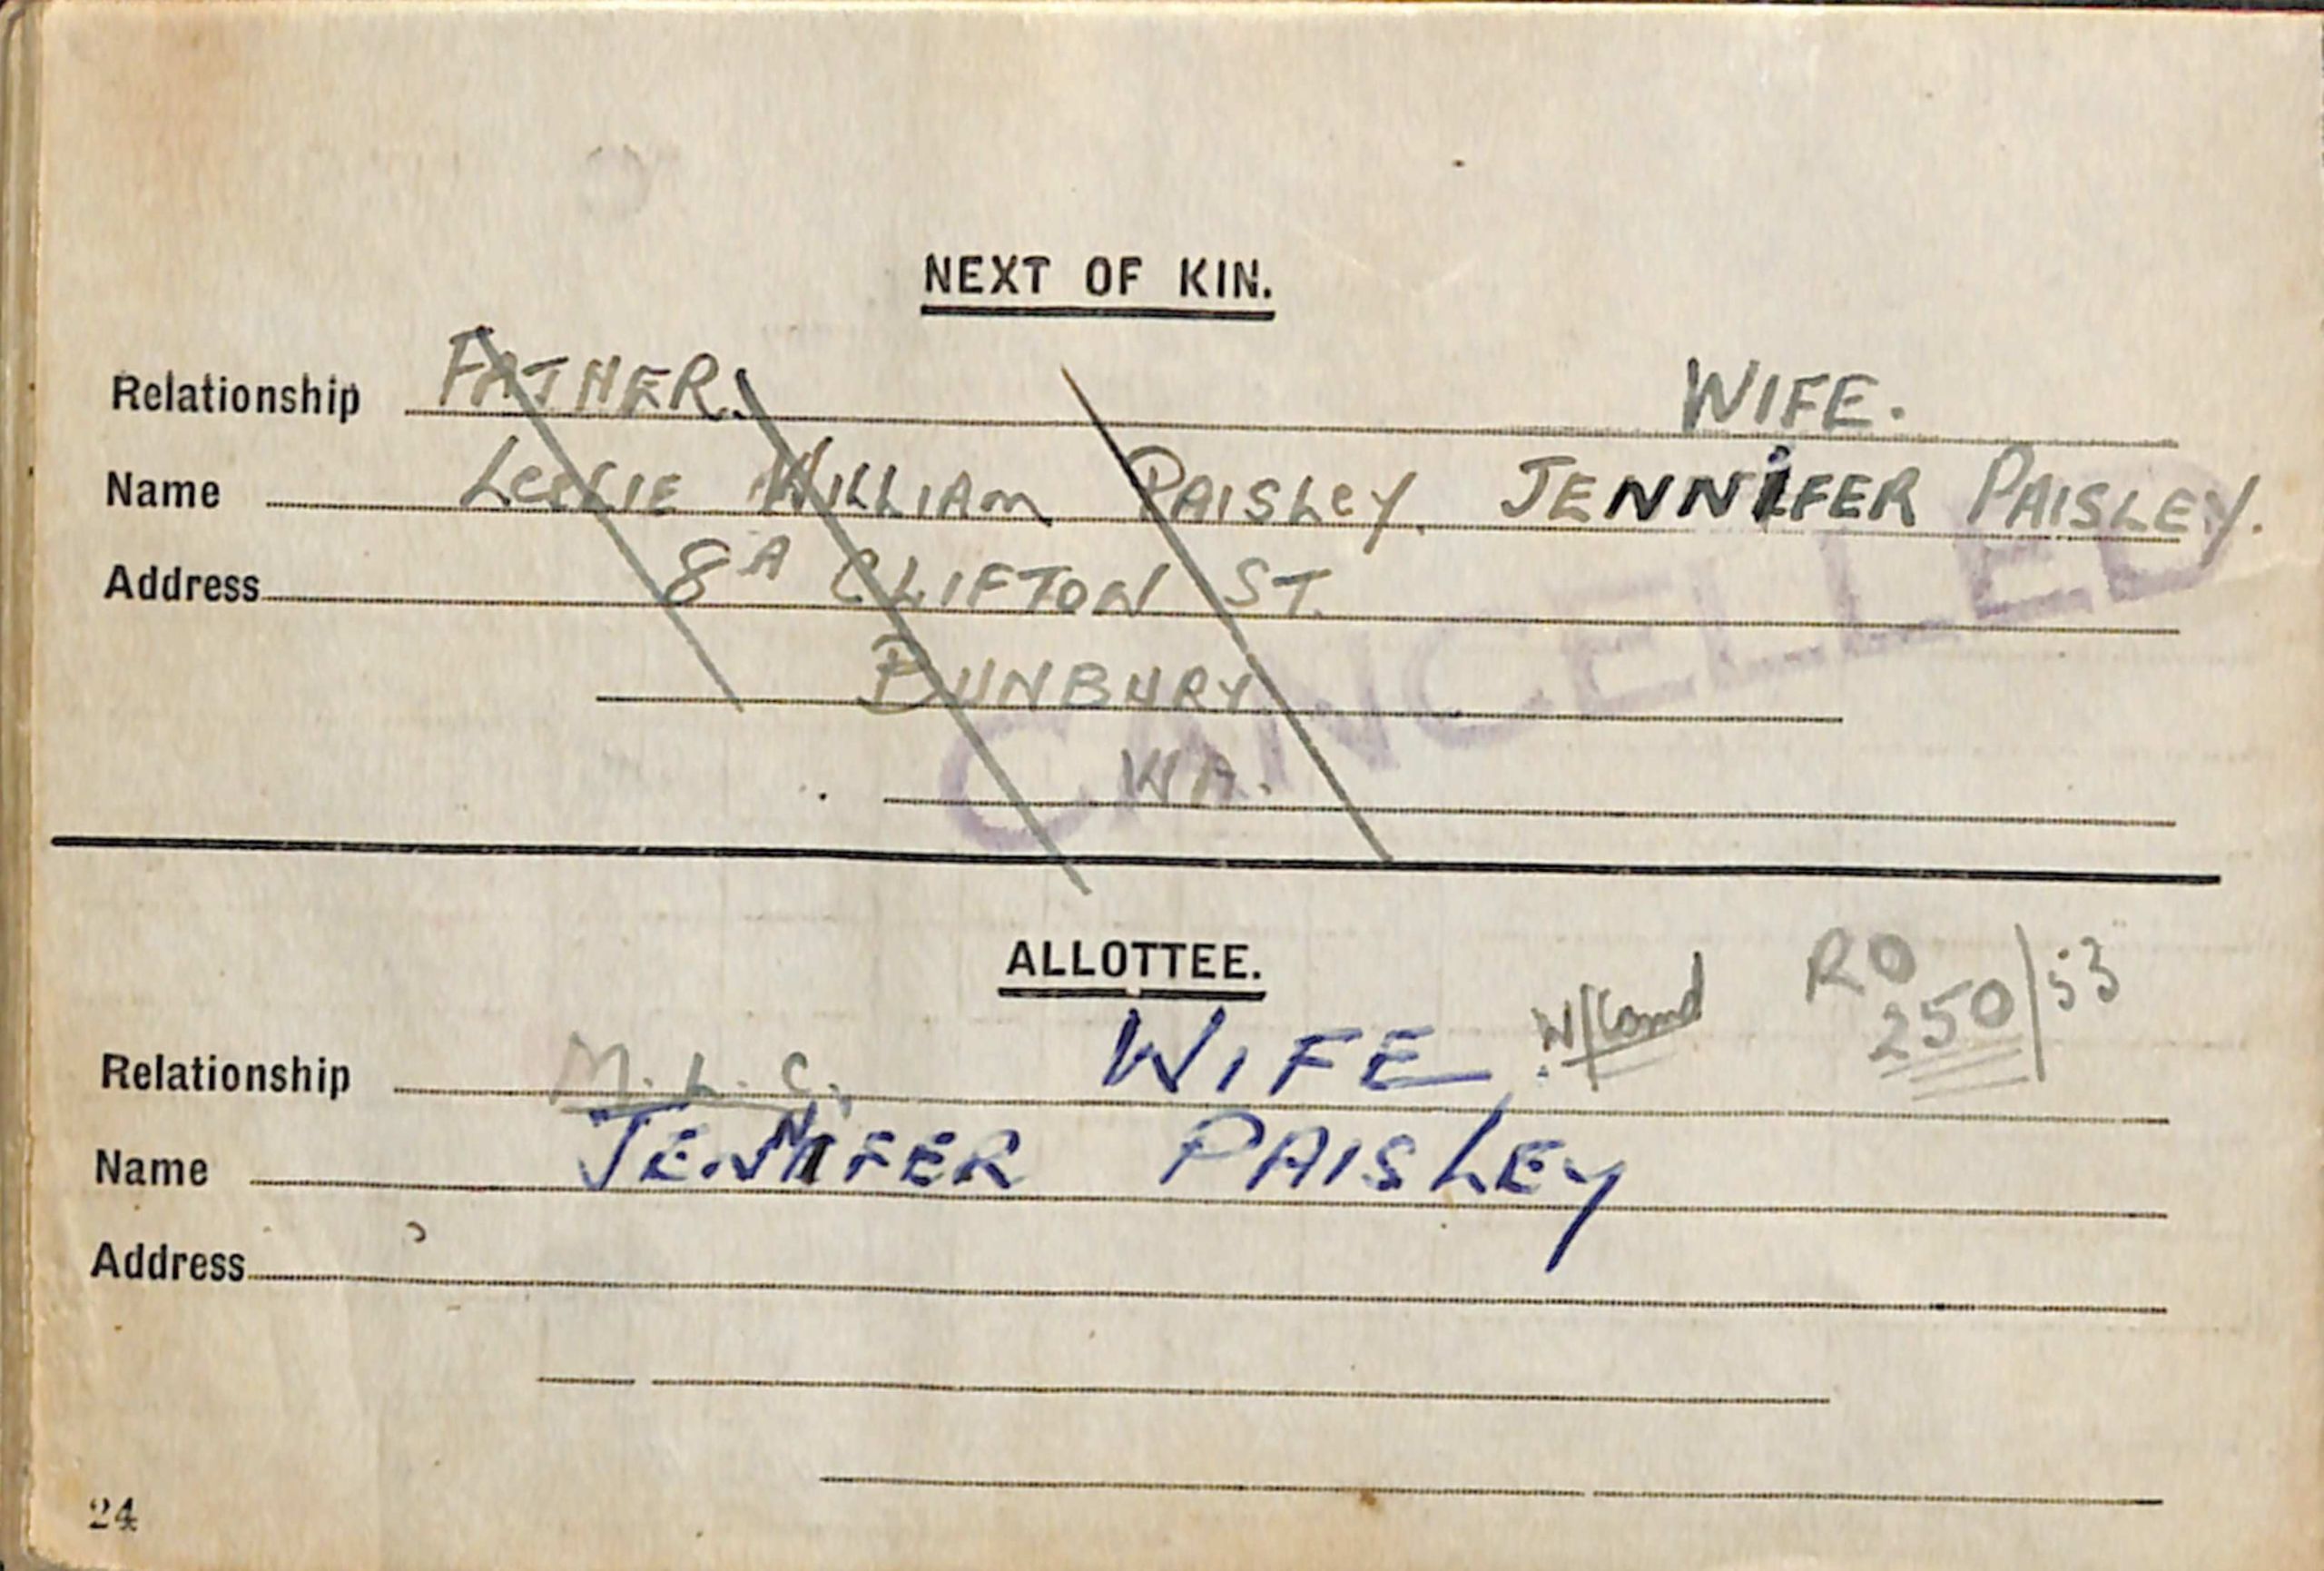 NEXT OF KIN.
Relationship FATHER. WIFE.
Name LESLIE WILLIAM PAISLEY. JENNIFER PAISLEY.
Address 8A CLIFTON ST.
BUNBURY
WA.
CANCELLED
ALLOTTEE.
RO
250/53
Relationship M.L.C. WIFE
Name JENNIFER PAISLEY
Address
24